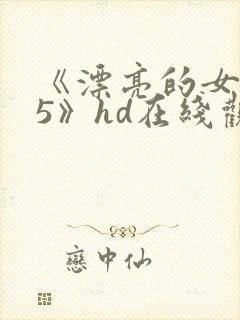 《漂亮的女
5》hd在綫觀
戀中仙